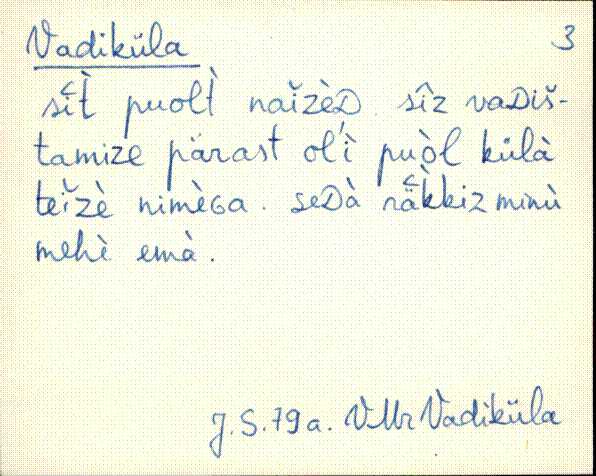 Vadiküla 3
si̮t̀ puolt̀ naĭzèᴅ. sîz vaᴅiš-
tamize pärast ol'ì puòl külà
teĭzè nimèɢa. seᴅà räk̀kiz minù
mehè emà.
J. S. 79 a. VMr Vadiküla